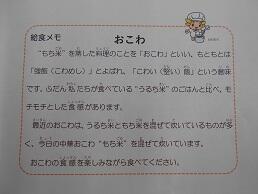 給食メモ
おこわ
“もち米”を蒸した料理のことを「おこわ」といい、もともとは
「強飯（こわめし）」とよばれ、「こわい（堅い）飯」という意味
です。ふだん私たちが食べている“うるち米”のごはんと比べ、モ
チモチとした食感があります。
最近のおこわは、うるち米ともち米を混ぜて炊いているものが多
く、今日の中華おこわ“もち米”を混ぜて炊いています。
おこわの食感を楽しみながら食べてください。